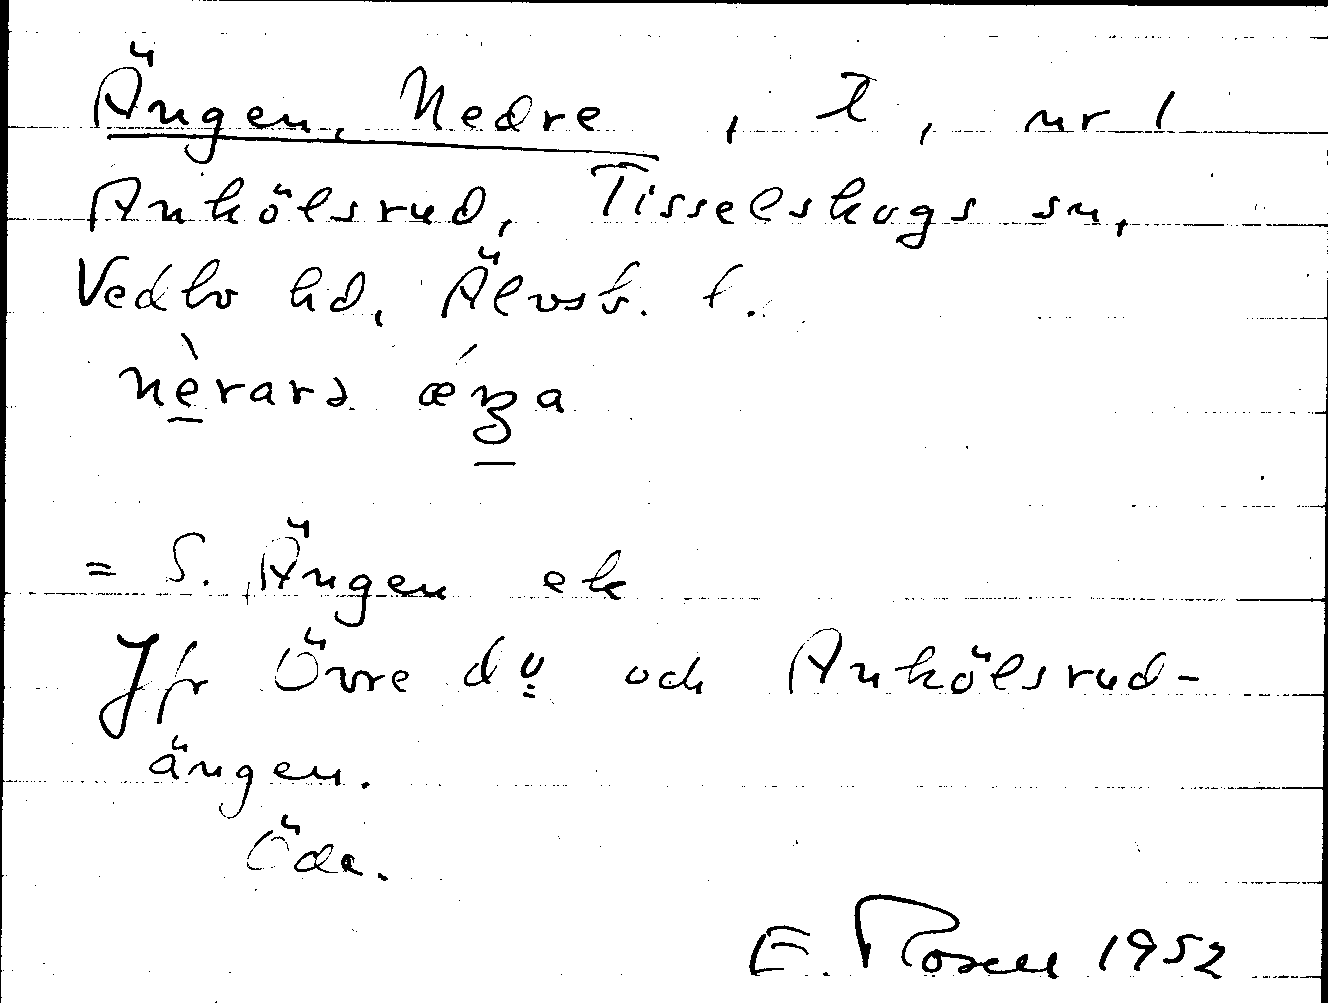 Ängen, Nedre, t, nr 1
Ankölsrud, Tisselskogs sn,
Vedbo hd, Älvsb. l.
nèrarə ǽŋa
= S. Ängen ek
Jfr Övre do och Ankölsrud-
ängen.
Öde.
E. Rosell 1952